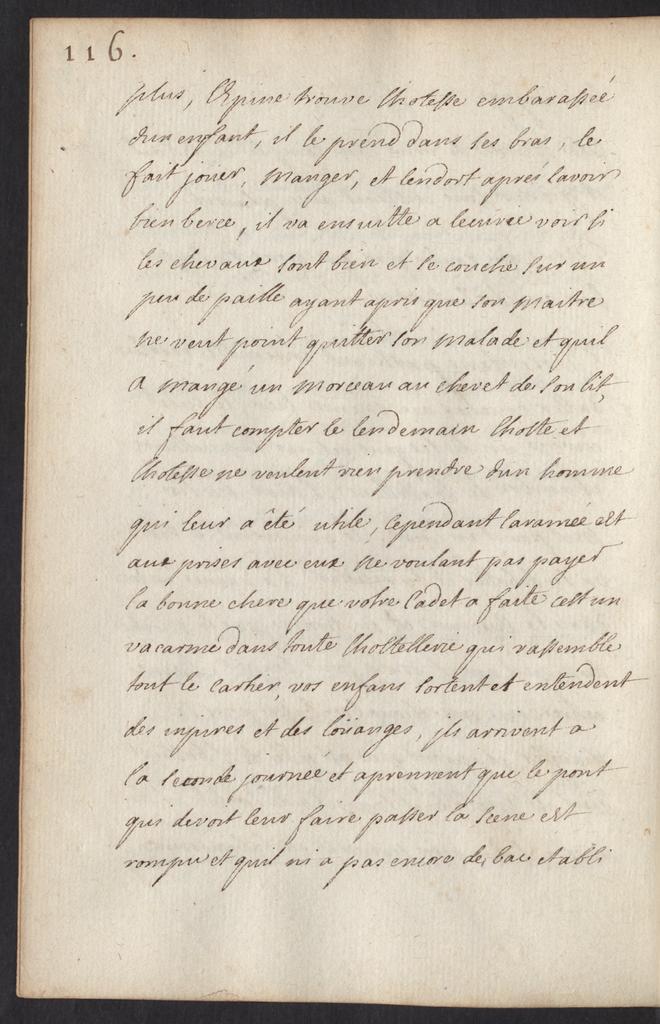 116.
plus, lepine trouve lhotesse embarassée
dun enfant, il le prend dans ses bras, le
fait jouer, manger, et lendort aprés lavoir
bien bercé, il va ensuitte a lecurie voir si
les chevaux sont bien et se couche sur un
peu de paille ayant apris que son maitre
ne veut point quitter son malade et quil
a mangé un morceau au chevet de son lit,
il faut compter le lendemain lhoste et
lhotesse ne veulent rien prendre dun homme
qui leur a été utile, cependant laramée est
aux prises avec eux ne voulant pas payer
la bonne chere que votre cadet a faite cest un
vacarme dans toute lhostellerie qui rassemble
tout le cartier, vos enfans sortent et entendent
des injures et des loüanges, ils arrivent a
la seconde journeé et aprennent que le pont
qui devoit leur faire passer la scene est
rompu et quil ni a pas encore de bac etabli